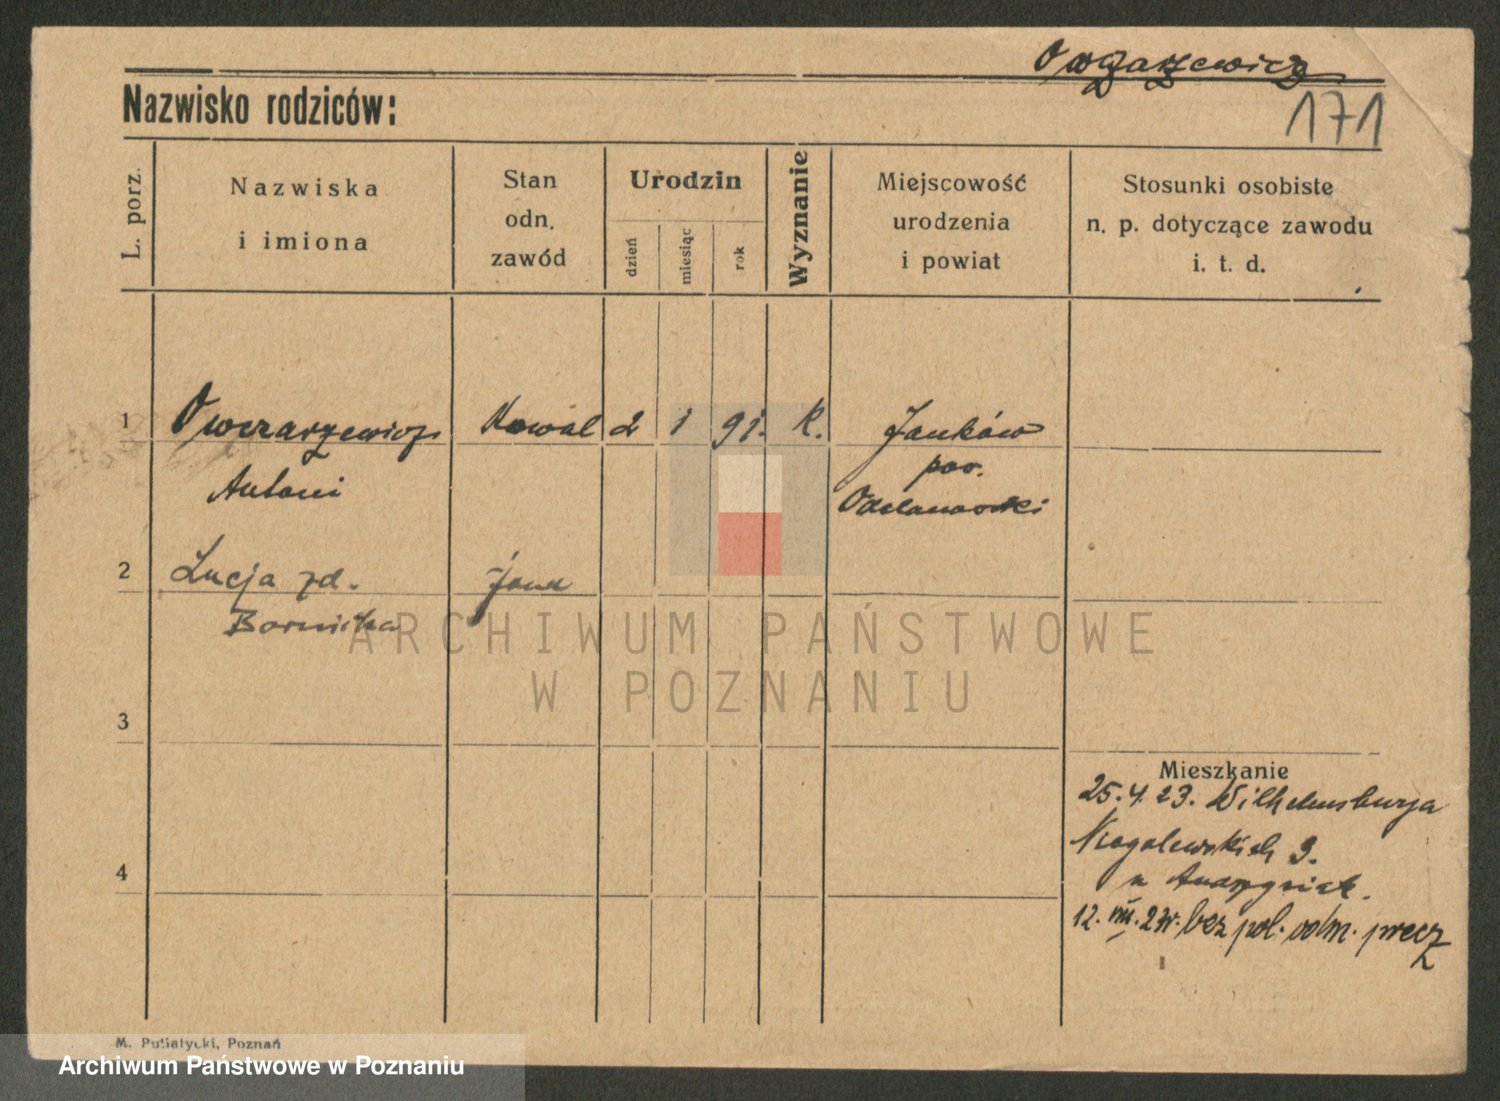 Owczarzewicz
171
Nazwisko rodziców:
L. porz.
Nazwiska
i imiona
Stan
odn.
zawód
Urodzin
dzień
miesiąc
rok
Wyznanie
Miejscowość
urodzenia
i powiat
Stosunki osobiste
n. p. dotyczące zawodu
i. t. d.
1 Owczarzewicz Kowal 2 1 91. k. Janków
Antoni
pow.
Odolanowski
2 Łucja zd. żona
3
4
ARCHIWUM PAŃSTWOWE
W POZNANIU
Mieszkanie
25.4.23. Wilhelmsburga
Niegolewskich 9.
u
12.VIII.27r. bez pol. odm. precz
M. Putiatycki, Poznań
Archiwum Państwowe w Poznaniu